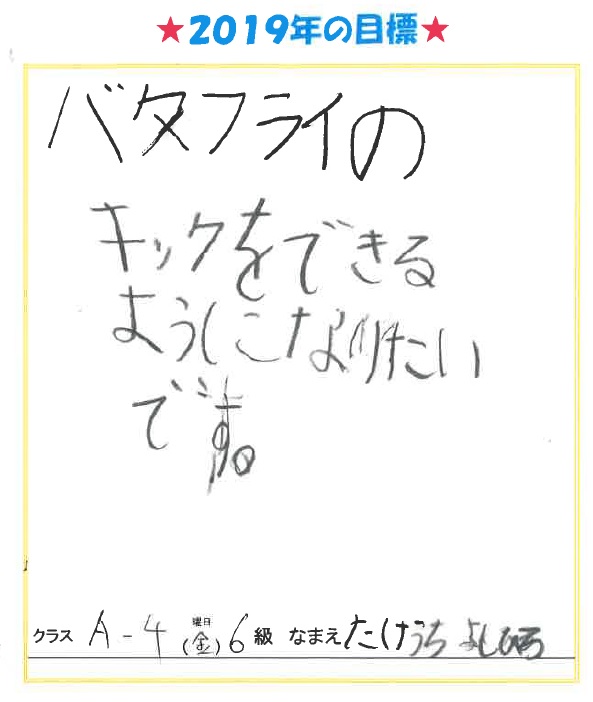 ★2019年の目標★
バタフライの
キックをできる
ようになりたい
です。
クラス A-4 曜日(金) 6級 なまえ たけうち よしひろ